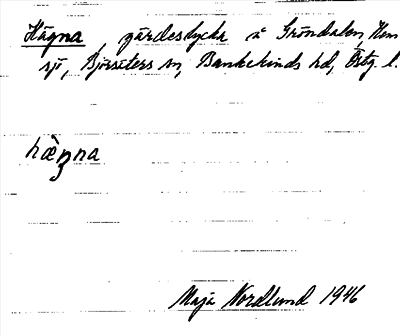 Hägna, gärdeslycka å Gröndalen, Hem
sjö, Björsäters sn, Bankekinds hd, Östg. l.
hægna
Maja Nordlund 1946